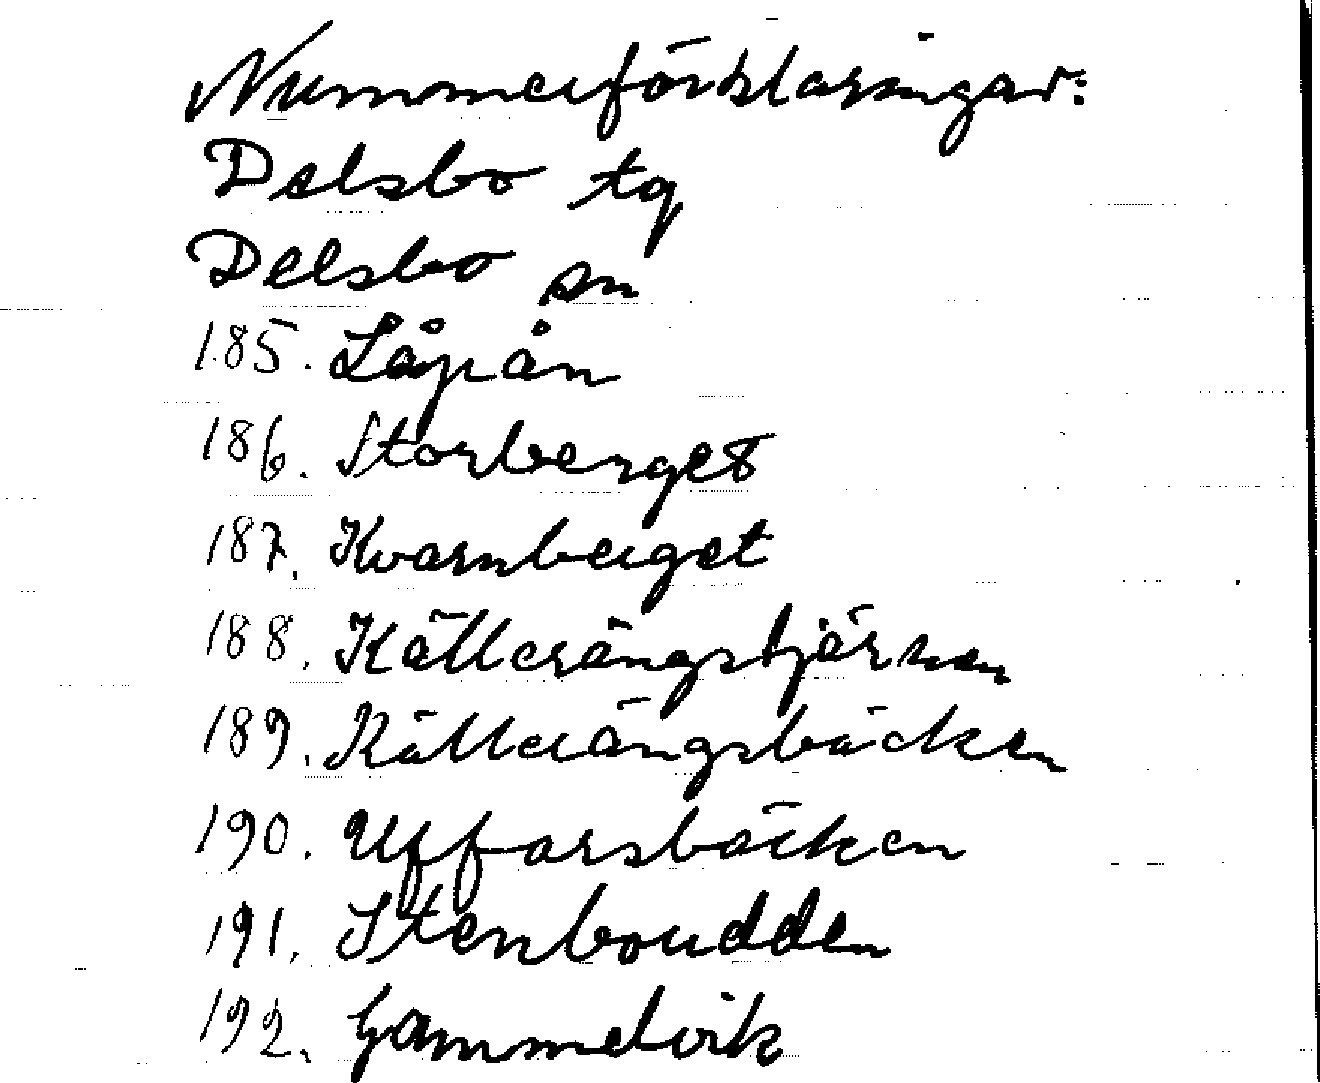 Nummerförklaringar:
Delsbo tg
Delsbo sn
185. Låpån
186. Storberget
187. Kvarnberget
188. Källerängstjärnen
189. Källerängsbäcken
190. Uffarsbäcken
191. Stenboudden
192. Gammelvik